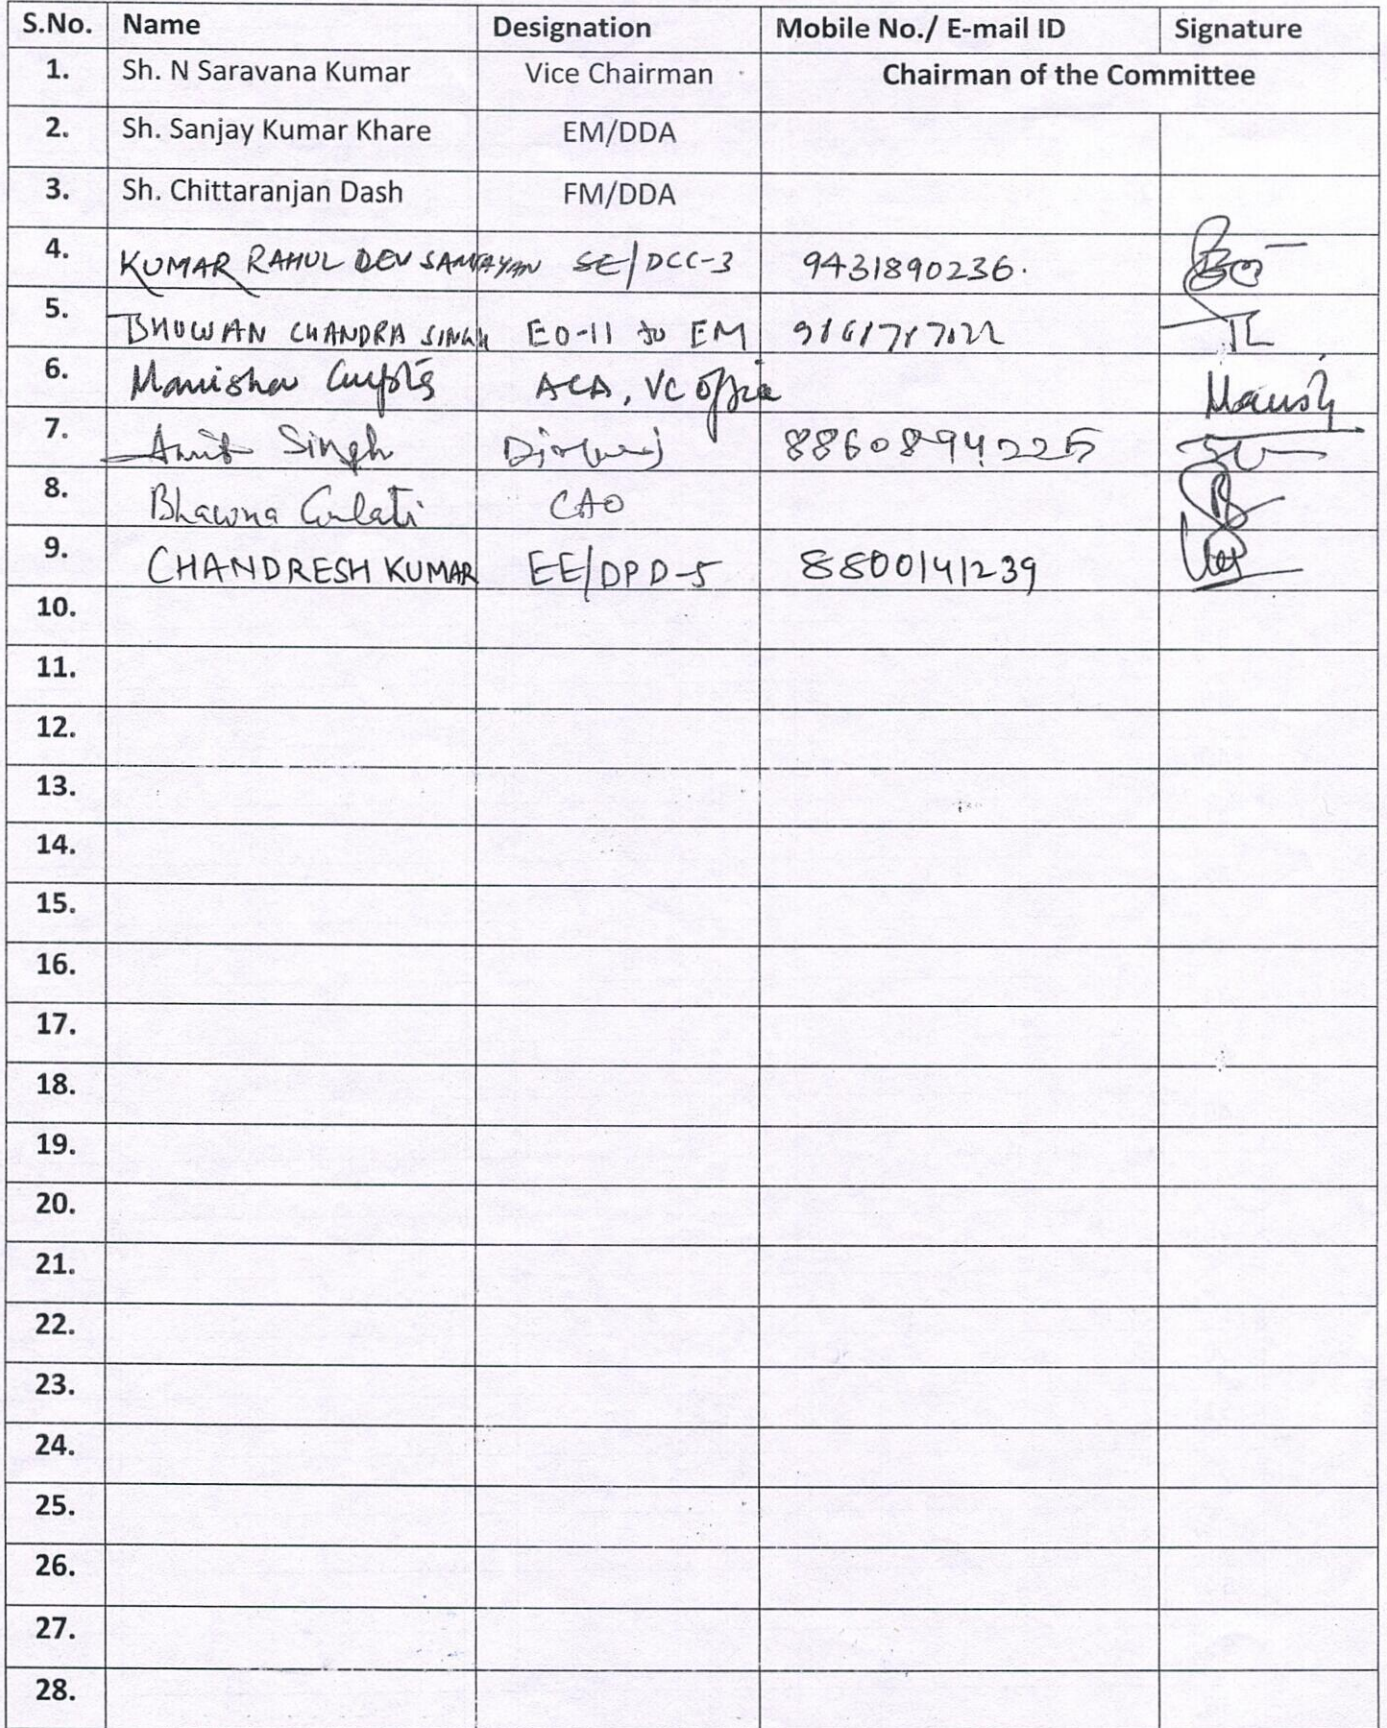 S.No. Name Designation Mobile No./ E-mail ID Signature
1. Sh. N Saravana Kumar Vice Chairman Chairman of the Committee
2. Sh. Sanjay Kumar Khare EM/DDA
3. Sh. Chittaranjan Dash FM/DDA
4. KUMAR RAHUL DEV SE/DCC-3 9431890236.
5. BHUWAN CHANDRA SINGH EO-II to EM
6. Manisha Gupta ACA, VC Office
7. Amit Singh 8860894225
8. Bhawna Gulati CAO
9. CHANDRESH KUMAR EE/DPD-5 8800141239
10.
11.
12.
13.
14.
15.
16.
17.
18.
19.
20.
21.
22.
23.
24.
25.
26.
27.
28.